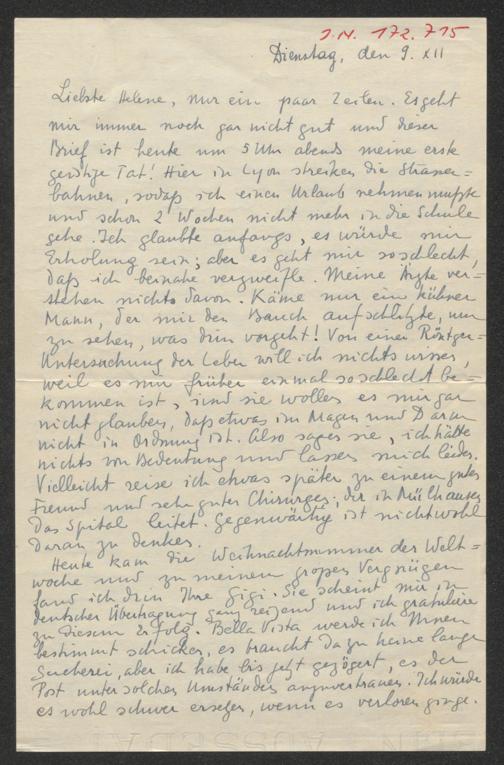 I.N. 172.715
Dienstag, den 9. XII
Liebste Helene, nur ein paar Zeilen. Es geht
mir immer noch gar nicht gut und dieser
Brief ist heute um 5 Uhr abends meine erste
geistige Tat! Hier in Lyon streiken die Strassen=
bahnen, sodaß ich einen Urlaub nehmen mußte
und schon 2 Wochen nicht mehr in die Schule
gehe. Ich glaubte anfangs, es würde mir
Erholung sein; aber es geht mir so schlecht,
daß ich beinahe verzweifle. Meine Ärzte ver=
stehen nichts davon. Käme nur ein kühner
Mann, der mir den Bauch aufschlitzte, um
zu sehen, was drin vorgeht! Von einer Röntgen=
Untersuchung der Leber will ich nichts wissen,
weil es mir früher einmal so schlecht be=
kommen ist, und sie wollen es mir gar
nicht glauben, daß etwas im Magen und Darm
nicht in Ordnung ist. Also sagen sie, ich hätte
nichts von Bedeutung und lassen mich leiden.
Vielleicht reise ich etwas später zu einem guten
Freund und sehr guten Chirurgen, der in Mülhausen
das Spital leitet. Gegenwärtig ist nicht wohl
daran zu denken.
Heute kam die Weihnachtsnummer der Welt=
woche und zu meinem großen Vergnügen
fand ich drin Ihre Gigi. Sie scheint mir in
deutscher Übertragung ganz reizend und ich gratuliere
zu diesem Erfolg. Bella Vista werde ich Ihnen
bestimmt schicken, es braucht dazu keine lange
Sucherei, aber ich habe bis jetzt gezögert, es der
Post unter solchen Umständen anzuvertrauen. Ich würde
es wohl schwer ersetzen, wenn es verloren ginge.